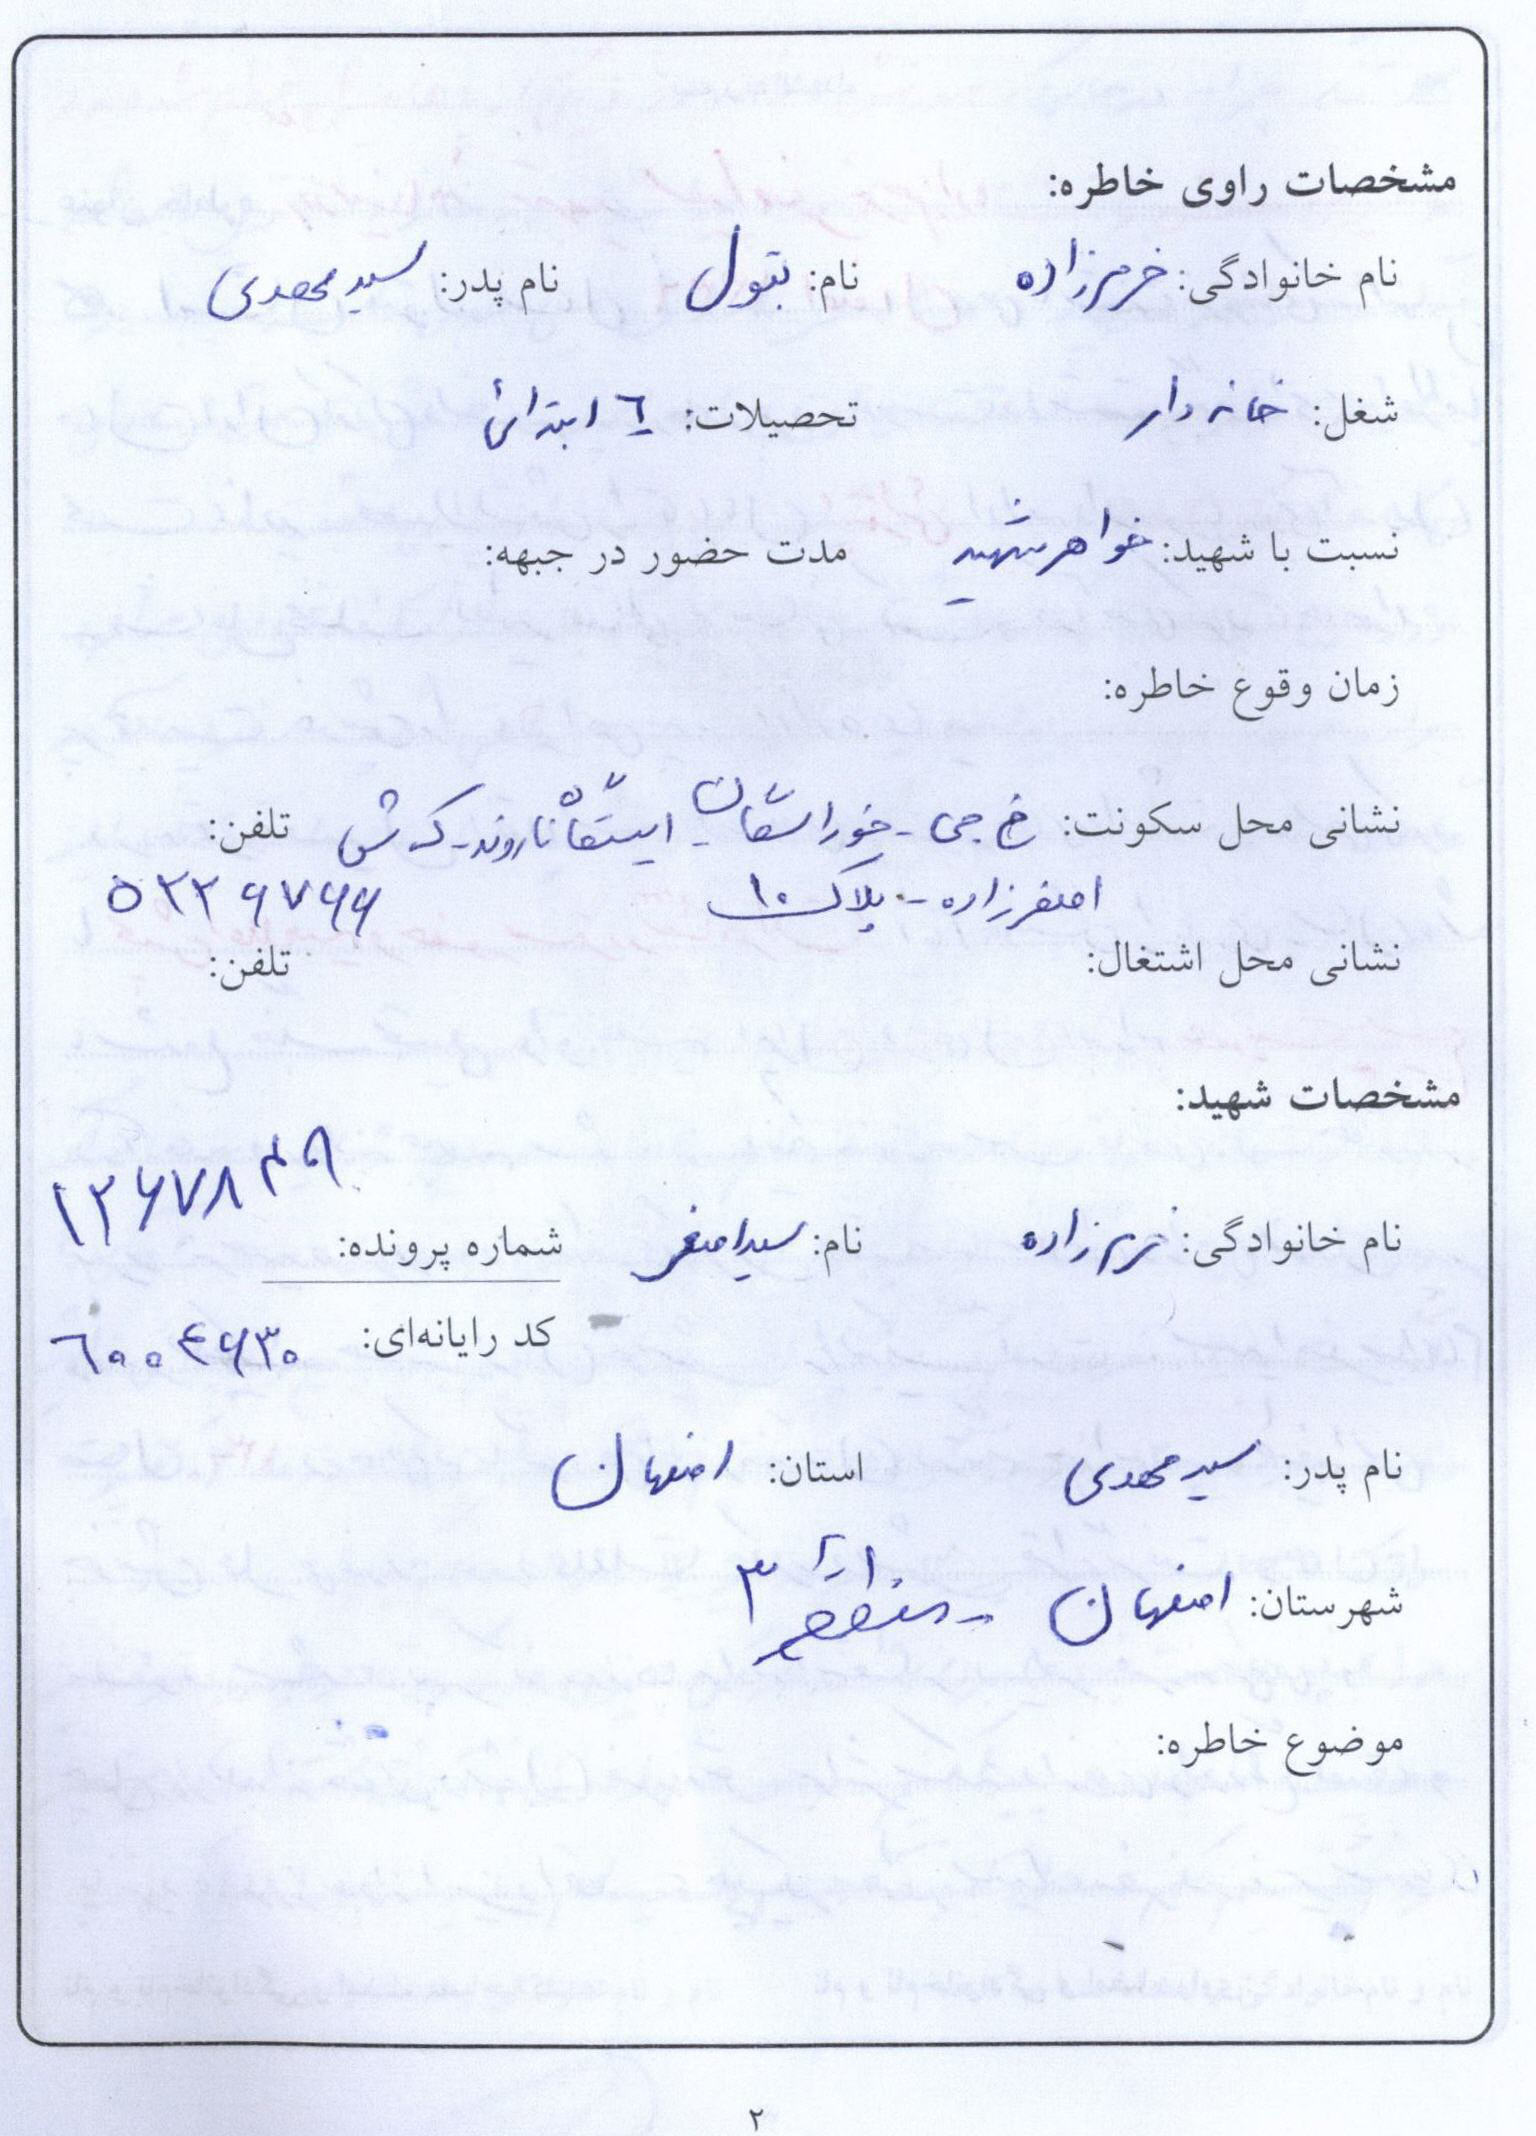 مشخصات راوی خاطره:
نام خانوادگی: خرمزاده نام: بتول نام پدر: سید مهدی
شغل: خانه دار تحصیلات: ٦ ابتدائی
نسبت با شهید: خواهر شهید مدت حضور در جبهه:
زمان وقوع خاطره:
نشانی محل سکونت: خ جی - خوراسگان ایستگاه نارون تلفن:
اصغرزاده - پلاک ۱۰ ۵۲۲۶۷۶۶
نشانی محل اشتغال: تلفن:
مشخصات شهید:
۱۲۶۷۸۴۹
نام خانوادگی: خرمزاده نام: سید اصغر شماره پرونده:
کد رایانه‌ای: ٦۰۰٤۶۳۰
نام پدر: سید مهدی استان: اصفهان
شهرستان: اصفهان - منطقه ۳
موضوع خاطره:
۲